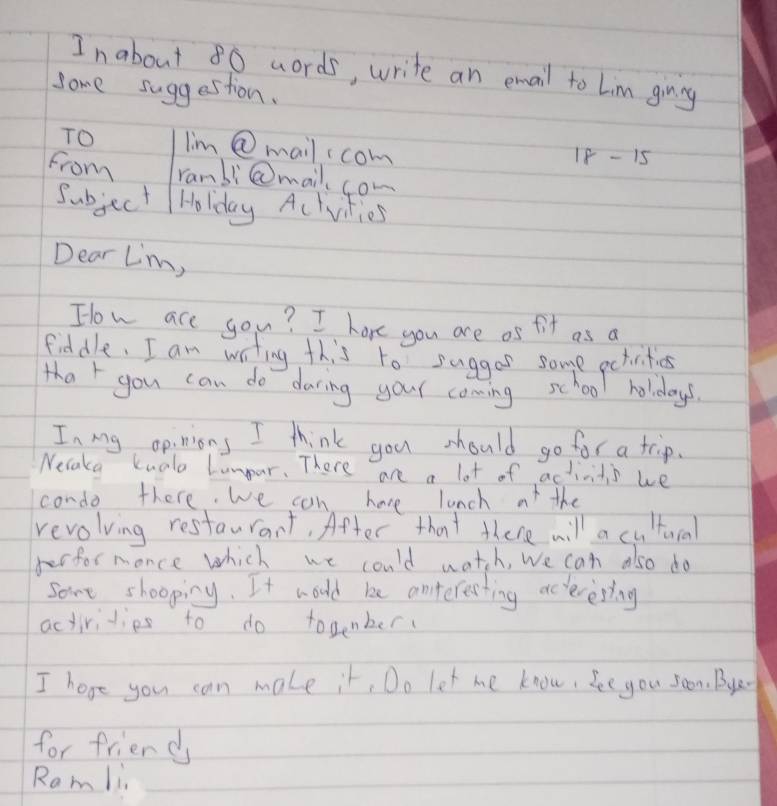 In about 80 words, write an email to Lim giving
some suggestion.
TO lim@mail.com
18 - 15
From rambli@mail.com
Subject Holiday Activities
Dear Lim,
How are you? I hope you are as fit as a
fiddle. I am writing this to sugges some activities
that you can do during your coming school holidays.
In my opinions I think you should go for a trip.
Neraka kuala Lumpur. There are a lot of we
condo there. We can have lunch at the
revolving restaurant. After that there will a cultural
performance which we could watch. We can also do
some shooping. It would be
activities to do
I hope you can make it. Do let me know. See you soon. Bye
for friend,
Ramli.